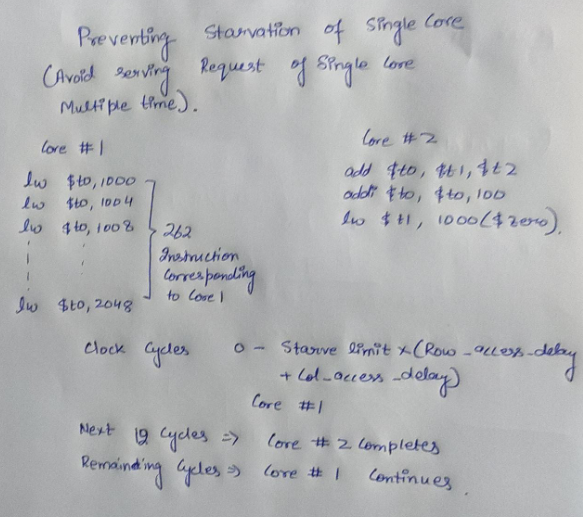 Preventing Starvation of Single Core
(Avoid serving Request of Single Core
Multiple time).
Core #1
lw $t0, 1000
lw $t0, 1004
lw $t0, 1008
lw $t0, 2048
262
Instruction
Corresponding
to Core 1
Core #2
add $t0, $t1, $t2
addi $t0, $t0, 100
lw $t1, 1000($zero).
Clock Cycles 0 - Starve limit x (Row_access_delay
+ Col_access_delay)
Core #1
Next 19 Cycles => Core #2 Completes
Remainding Cycles => Core #1 Continues.